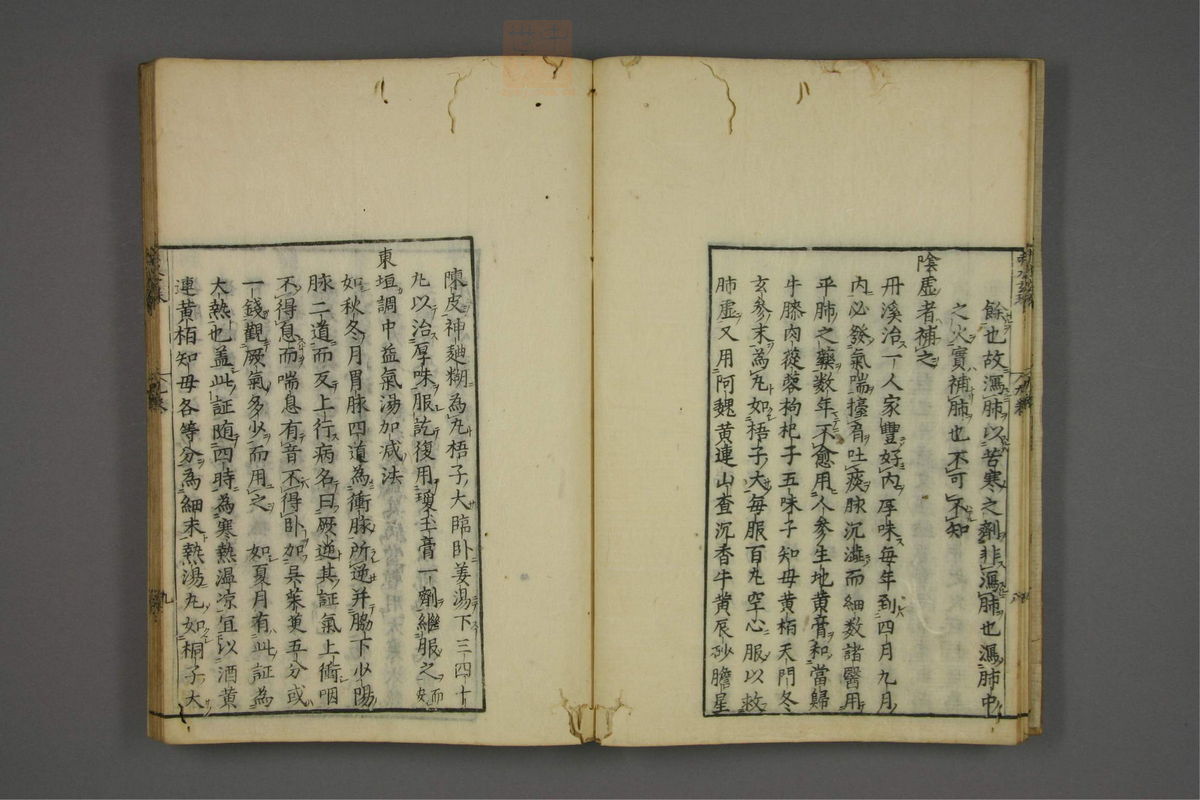 餘也故瀉肺以苦寒之劑非瀉肺也瀉肺中
之火實補肺也不可不知
陰虛者補之
丹溪治一人家豐好內厚味每年到四月九月
內必發氣喘擡肩吐痰脉沉澁而細数諸醫用
平肺之藥数年不愈用人參生地黃膏和當歸
牛膝肉蓯蓉枸杞子五味子知母黃栢天門冬
玄參末為丸如梧子大每服百丸空心服以救
肺虛又用阿魏黃連山查沉香牛黃辰砂膽星
陳皮神麯糊為丸梧子大臨卧姜湯下三四十
丸以治厚味服訖復用瓊玉膏一劑繼服之而安
東垣調中益氣湯加減法
如秋冬月胃脉四道為衝脉所逆并脇下少陽
脉二道而反上行病名曰厥逆其証氣上衝咽
不得息而喘息有音不得卧如吳茱萸五分或
一錢觀厥氣多少而用之 如夏月有此証為
大熱也盖此証随四時為寒熱温凉宜以酒黃
連黃栢知母各等分為細末熱湯丸如桐子大
九